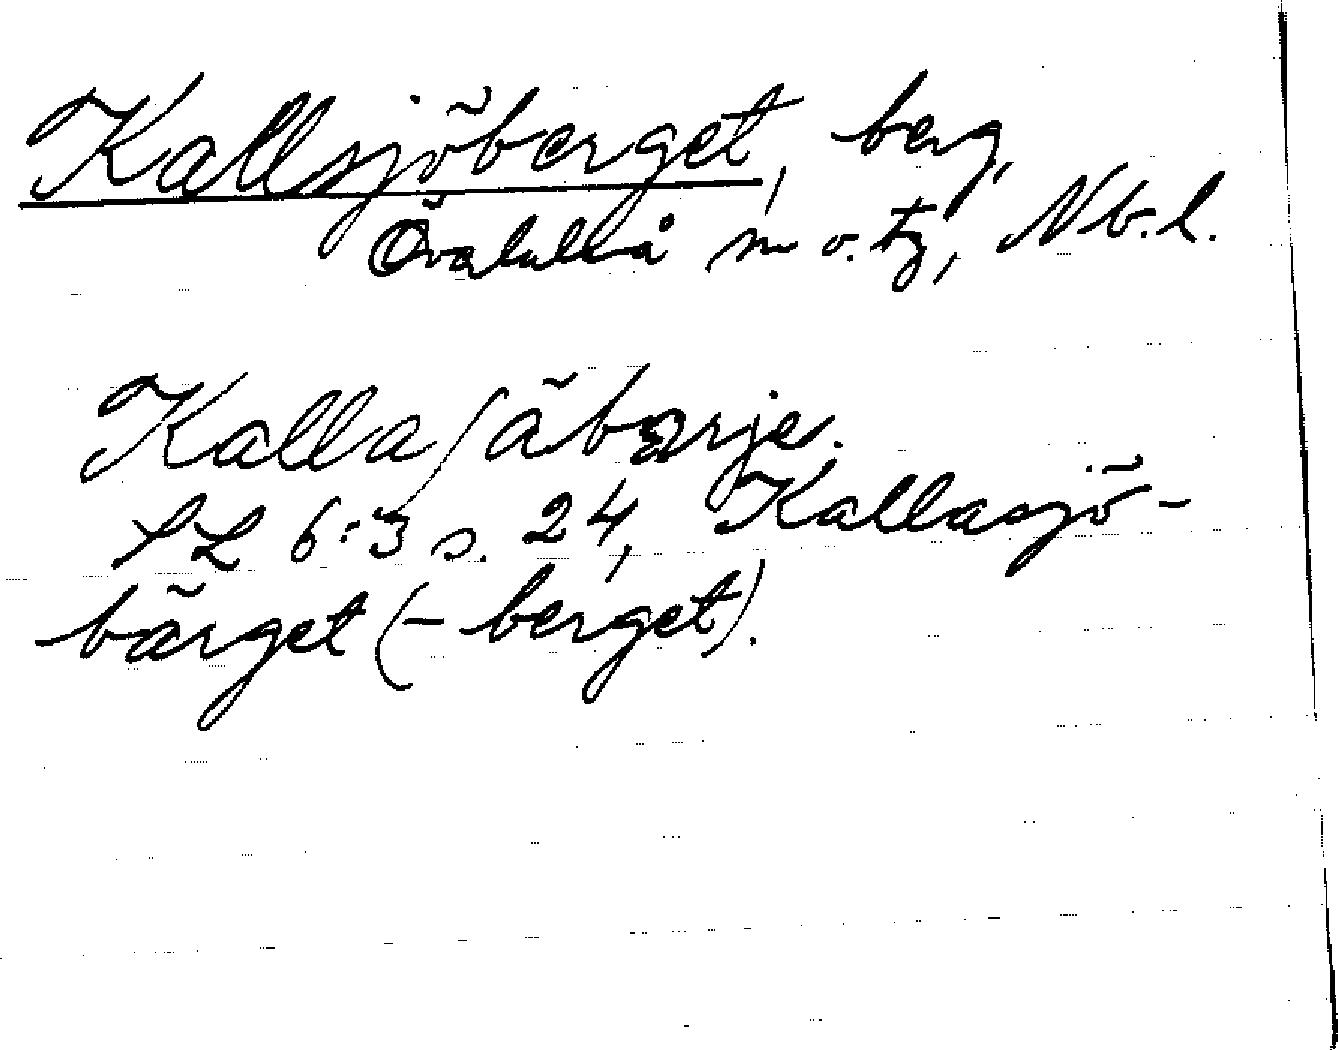 Kallsjöberget, berg,
Överluleå sn o. tg, Nb. l.
Kallaʃäbarje.
SL 6:3 s. 24, Kallasjö-
bärget (-berget).